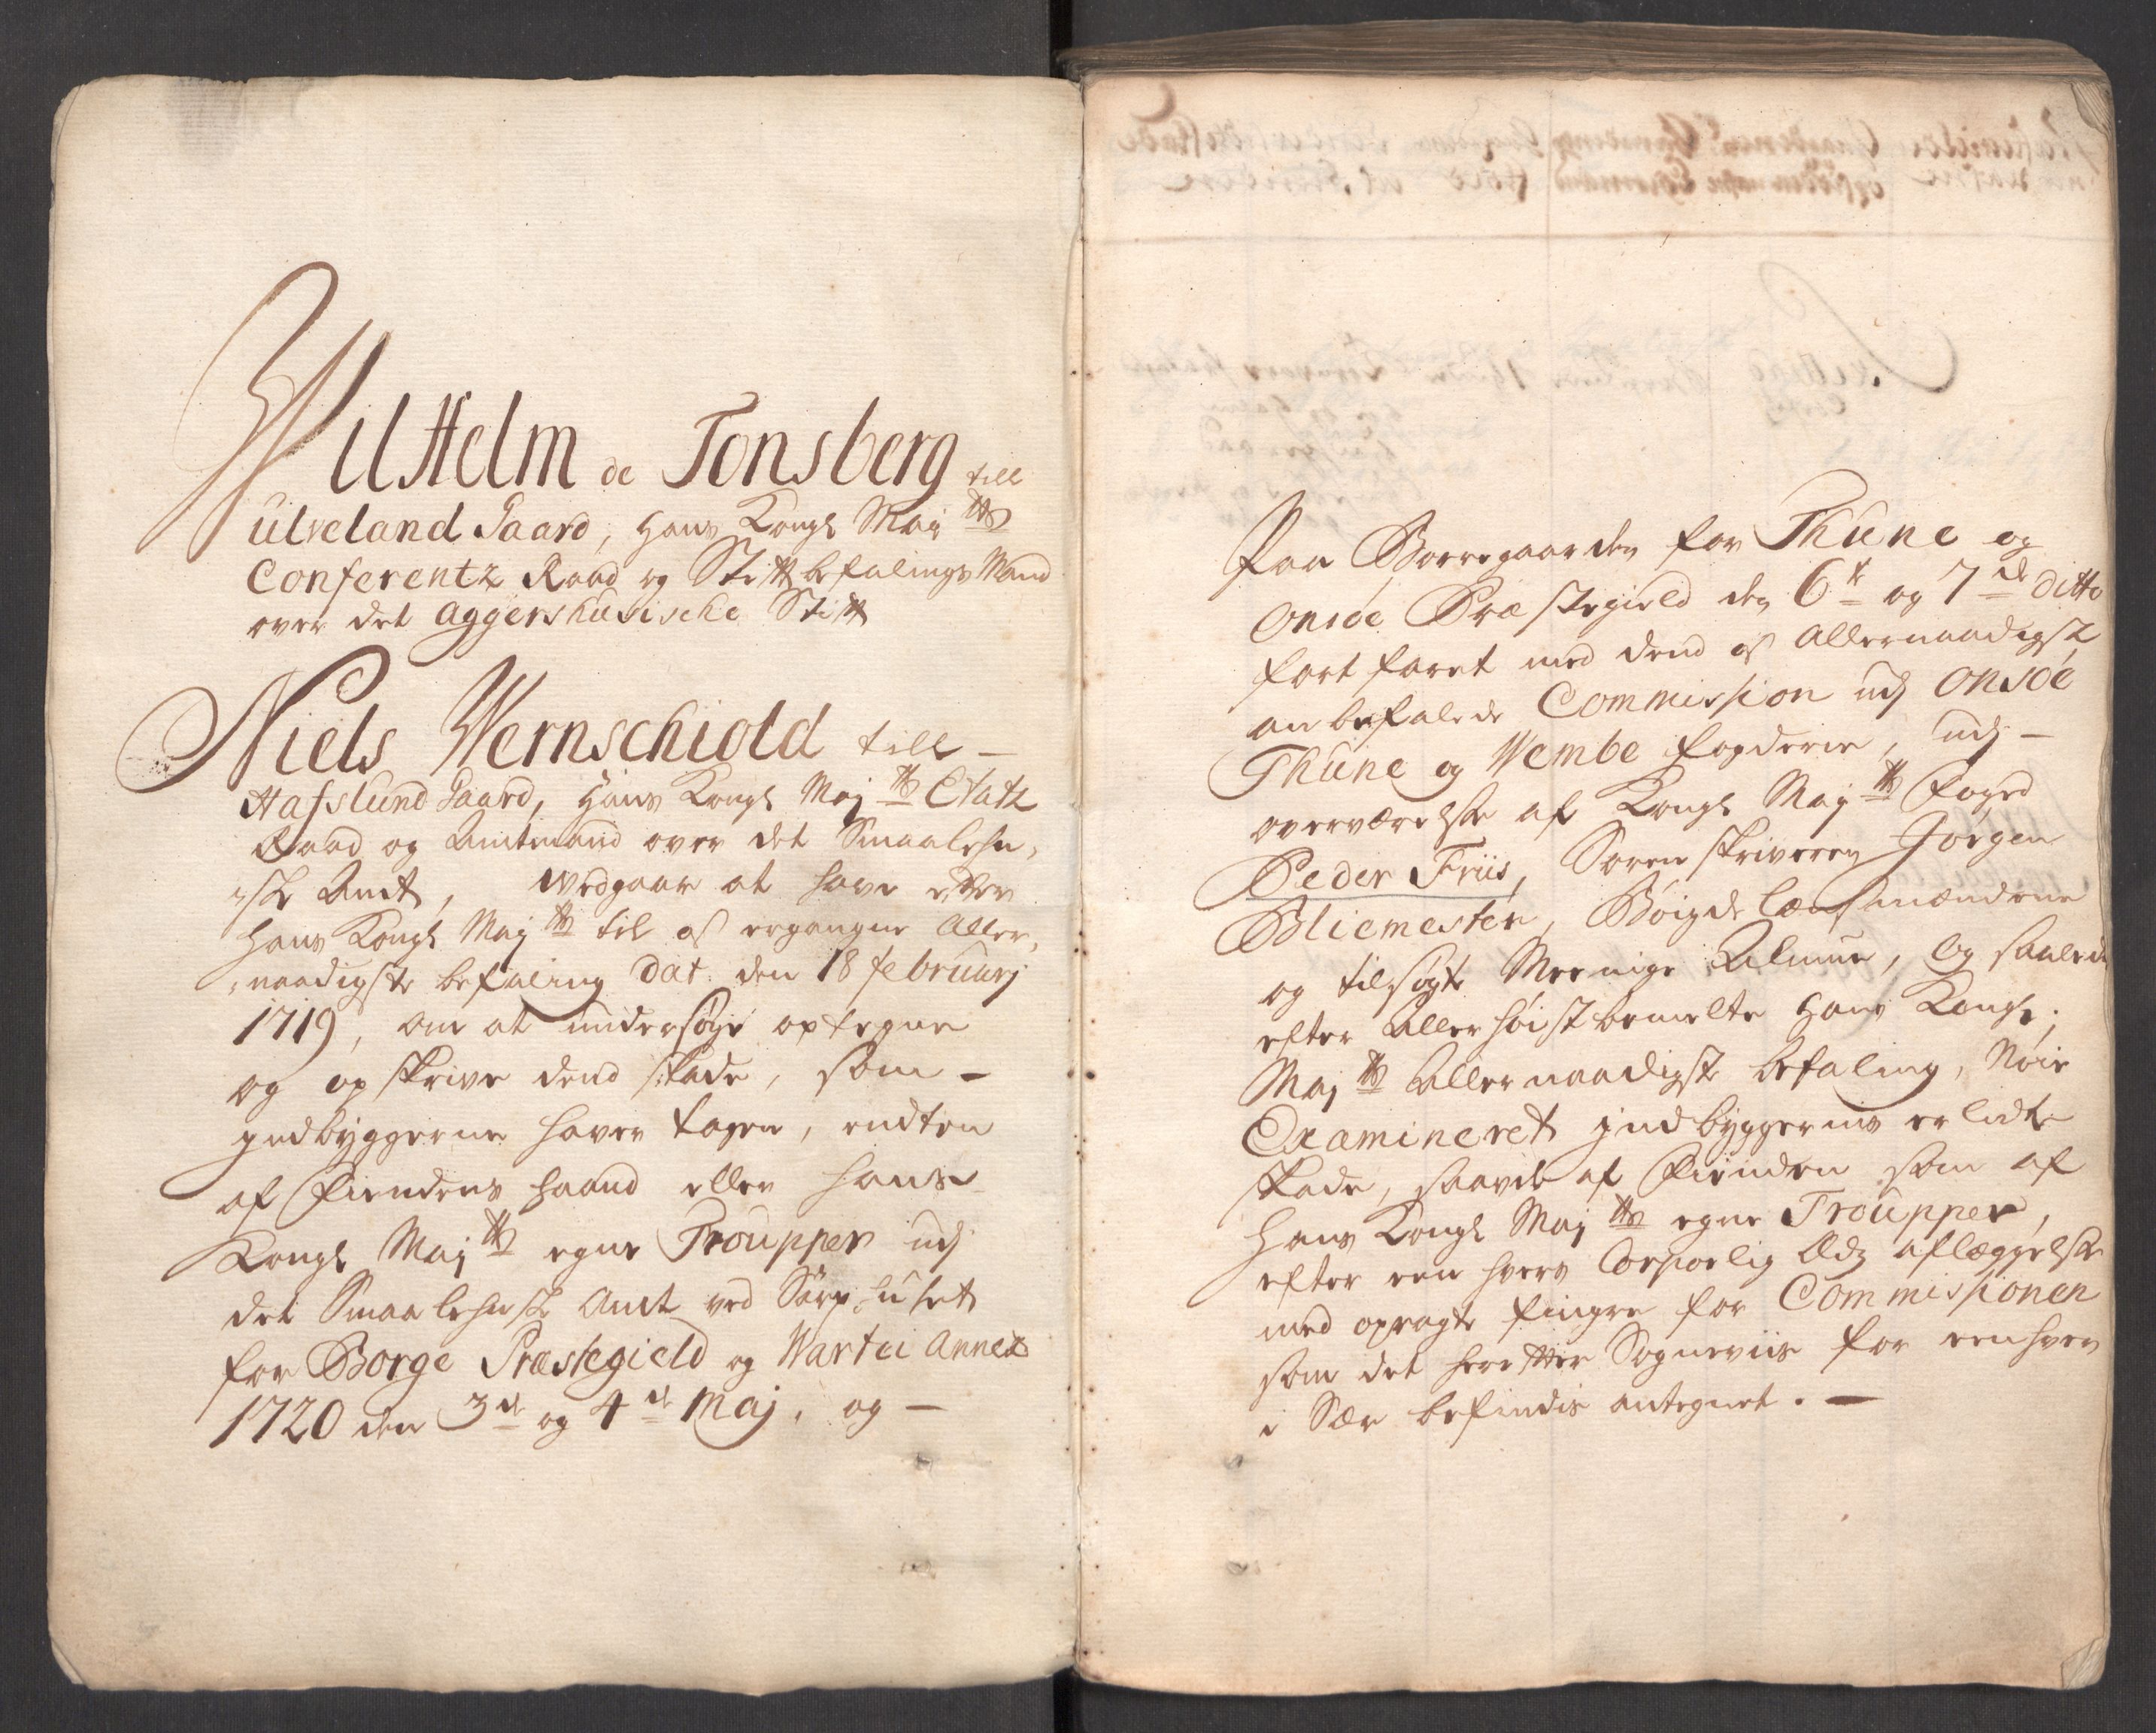 Wilhelm de Tonsberg till
Ulveland Gaard, Hans Kongl Maj tts
Conferentz Raad og Stiftbefalings Mand
over det Aggershusische Stift
Niels Wernschiold till -
Hafslund Gaard, Hans Kongl Maj tts Etatz
Raad og Amtmand over det Smaalehn,
,ske Amt, Vedgaar at have efter
Hans Kongl Maj tts til oss ergangne Aller,
,naadigste befaling Dat: den 18 februarj
1719, om at undersøge optegne
og opskrive dend skade, som -
jndbyggerne haver tagen, endten
af Fiendens haand eller Hans
Kongl Maj tts egne Troupper udj
det Smaalehnske Amt ved Sarpshuset
for Borge Præstegield og Vartei Annex
1720 den 3de og 4de Maj, og -
Paa Borregaarden for Thune og
Onsøe Præstegield den 6te og 7de ditto
fortfaret med dend os allernaadigst
anbefalede Commission udj Onsøe
Thune og Wembe fogderie, udj -
overværelse af Kongl Maj tts foged
Peder Friis, Sorenskriveren Jørgen
Bliemester, Bøigde Lænsmændene
og tilsøgte Meenige Almue, og saalede
efter Allerhøistbemelte Hans Kongl:
Maj tts Allernaadigste befaling, Nøie
Examineret jndbyggernis erlidte
skade, saavel af Fienden som af
Hans Kongl Maj tts egne Troupper,
efter een hvers Corporlig Eds aflæggelse
med opragte fingre for Commissionen
som det herefter Sogneviis for eenhver
i Sær befindis antegnet. -